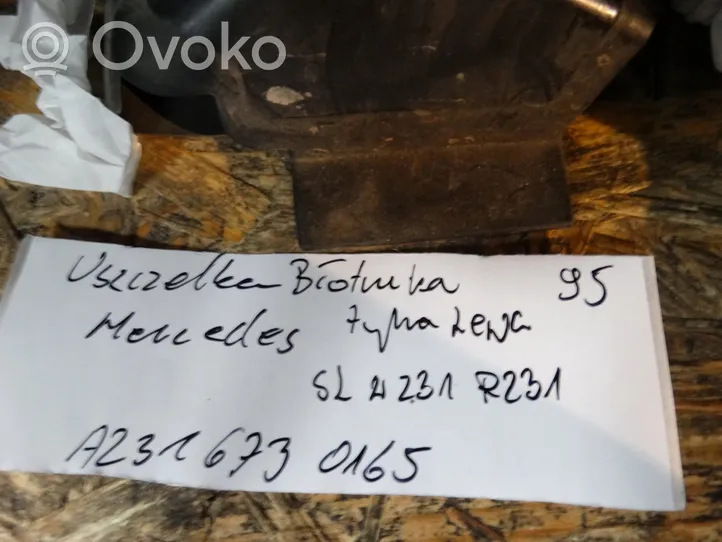 Ovoko
Uszczelka Błotnika 95
Mercedes tylna Lewa
SL W231 R231
A231 673 0165